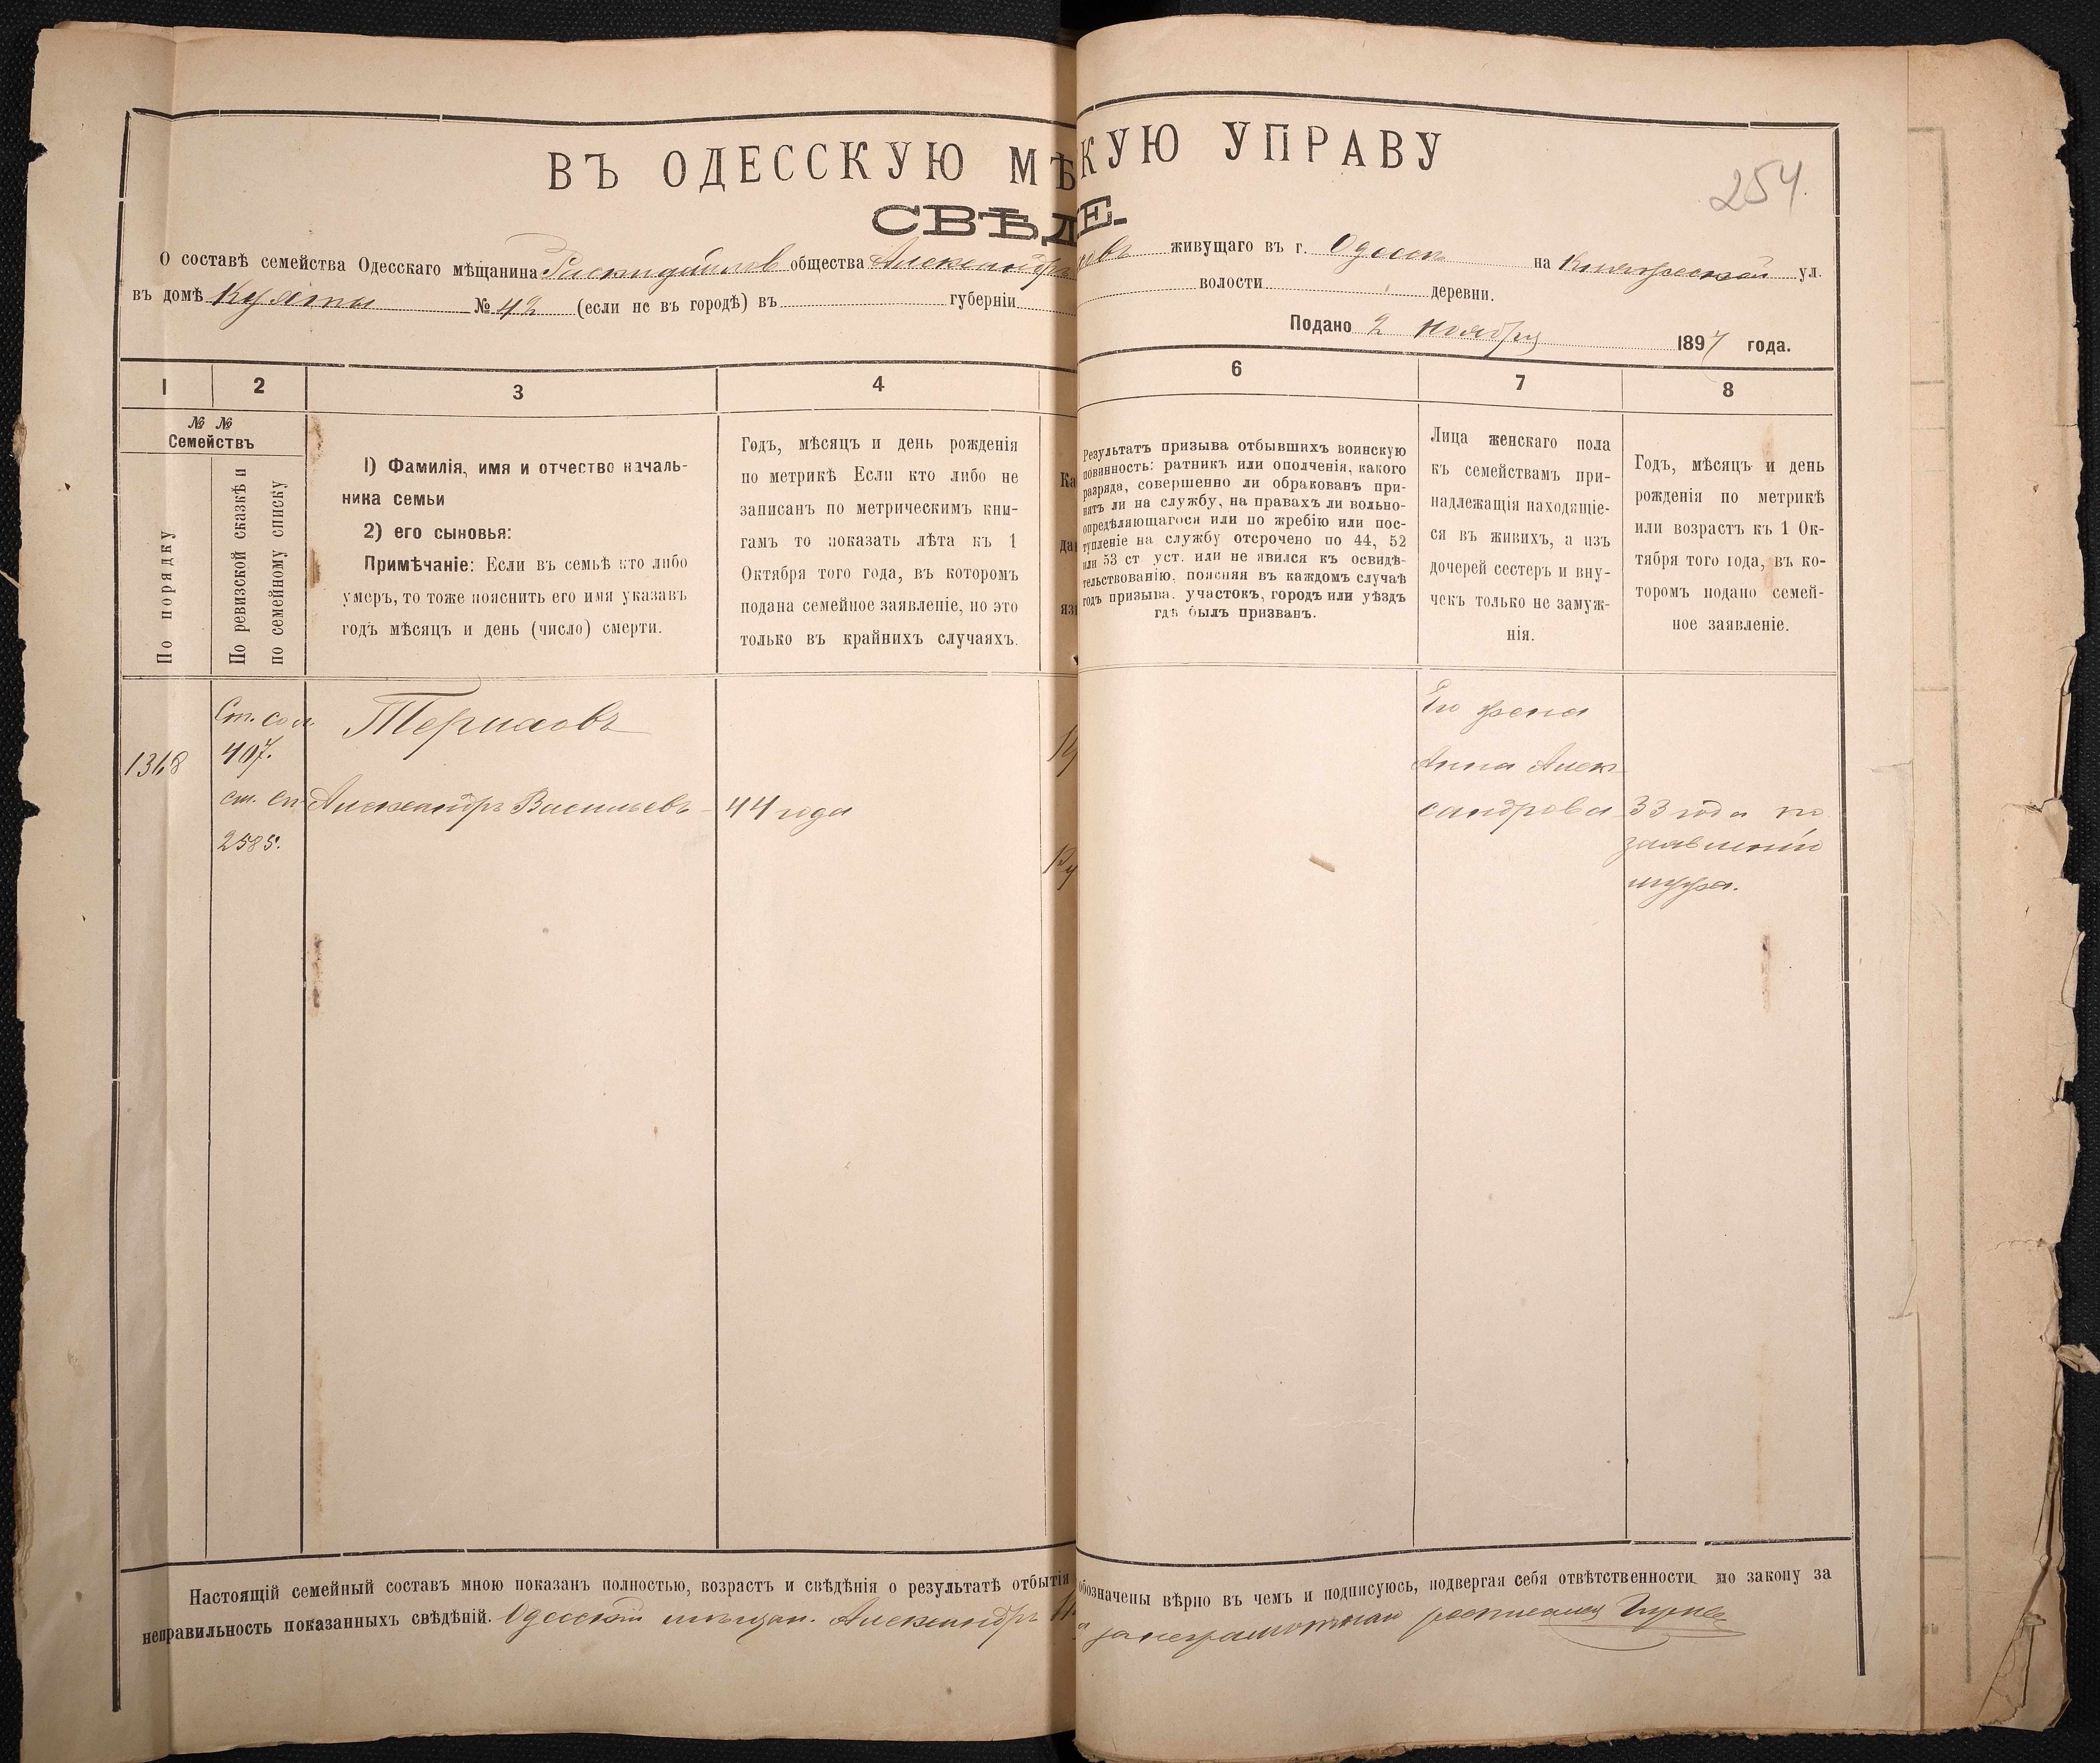 ВЪ ОДЕССКУЮ МѢ КУЮ УПРАВУ
254
СВѢД Е.
О составѣ семейства Одесскаго мѣщанина общества Александръ овъ живущаго въ г. Одессѣ на Княжеской ул.
въ домѣ Куяты № 42 (если не въ городѣ) въ губерніи волости деревни.
Подано 2 ноября 1897 года.
1 2 3 4 6 7 8
№ №
Семействъ
По порядку
По ревизской сказкѣ и
по семейному списку
1) Фамилія, имя и отчество началь-
ника семьи
2) его сыновья:
Примѣчаніе: Если въ семьѣ кто либо
умеръ, то тоже пояснить его имя указавъ
годъ мѣсяцъ и день (число) смерти.
Годъ, мѣсяцъ и день рожденія
по метрикѣ Если кто либо не
записанъ по метрическимъ кни-
гамъ то показать лѣта къ 1
Октября того года, въ которомъ
подана семейное заявленіе, но это
только въ крайнихъ случаяхъ.
Ка
да
яз
Результатъ призыва отбывшихъ воинскую
повинность: ратникъ или ополченія, какого
разряда, совершенно ли обракованъ при-
нятъ ли на службу, на правахъ ли вольно-
опредѣляющагося или по жребію или пос-
тупленіе на службу отсрочено по 44, 52
или 53 ст уст. или не явился къ освидѣ-
тельствованію, поясняя въ каждомъ случаѣ
годъ призыва, участокъ, городъ или уѣздъ
гдѣ былъ призванъ.
Лица женскаго пола
къ семействамъ при-
надлежащія находящіе-
ся въ живихъ, а изъ
дочерей сестеръ и вну-
чекъ только не замуж-
нія.
Годъ, мѣсяцъ и день
рожденія по метрикѣ
или возрастъ къ 1 Ок-
тября того года, въ ко-
торомъ подано семей-
ное заявленіе.
1318
407.
ст. сп.
2585.
Терновъ
Александръ Васильевъ
44 года
Его жена
Анна Алек
сандрова
33 года по
заявленію
мужа.
Настоящій семейный составъ мною показанъ полностью, возрастъ и свѣдѣнія о результатѣ отбытія обозначены вѣрно въ чемъ и подписуюсь, подвергая себя отвѣтственности по закону за
неправильность показанныхъ свѣдѣній. Одесскій мѣщан. Александръ